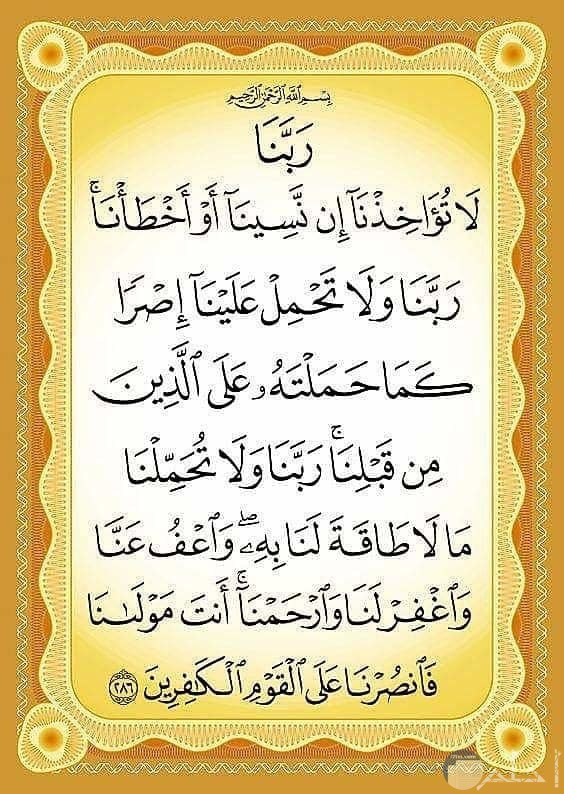 بِسْمِ ٱللَّهِ ٱلرَّحْمَٰنِ ٱلرَّحِيمِ
رَبَّنَا
لَا تُؤَاخِذْنَآ إِن نَّسِينَآ أَوْ أَخْطَأْنَا ۚ
رَبَّنَا وَلَا تَحْمِلْ عَلَيْنَآ إِصْرًا
كَمَا حَمَلْتَهُۥ عَلَى ٱلَّذِينَ
مِن قَبْلِنَا ۚ رَبَّنَا وَلَا تُحَمِّلْنَا
مَا لَا طَاقَةَ لَنَا بِهِۦ ۖ وَٱعْفُ عَنَّا
وَٱغْفِرْ لَنَا وَٱرْحَمْنَآ ۚ أَنتَ مَوْلَىٰنَا
فَٱنصُرْنَا عَلَى ٱلْقَوْمِ ٱلْكَٰفِرِينَ ٢٨٦